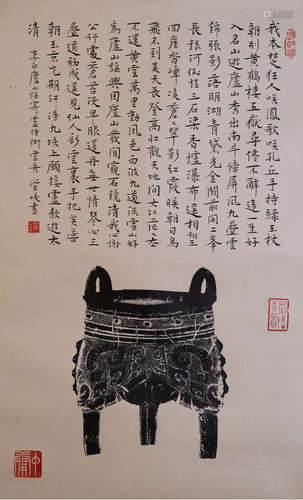 我本楚狂人咲鳳歌咲孔丘手持綠玉杖
朝別黃鶴樓五嶽尋僊不辭遠一生好
入名山遊廬山秀出南斗傍屏風九疊雲
錦張影落明湖青黛光金闕前開二峯
長銀河倒挂三石梁香爐瀑布遙相望
迴崖沓嶂凌蒼蒼翠影紅霞暎朝日鳥
飛不到吳天長登高壯觀天地間大江茫茫去
不還黃雲萬里動風色白波九道流雪山好
為廬山謠興因廬山發閒窺石鏡清我心謝
公行處蒼苔沒早服還丹無世情琴心三
疊道初成遙見仙人彩雲裏手把芙蓉
朝玉京先期汗漫九垓上願接盧敖遊太
清 李白廬山謠寄盧侍御虛舟 書